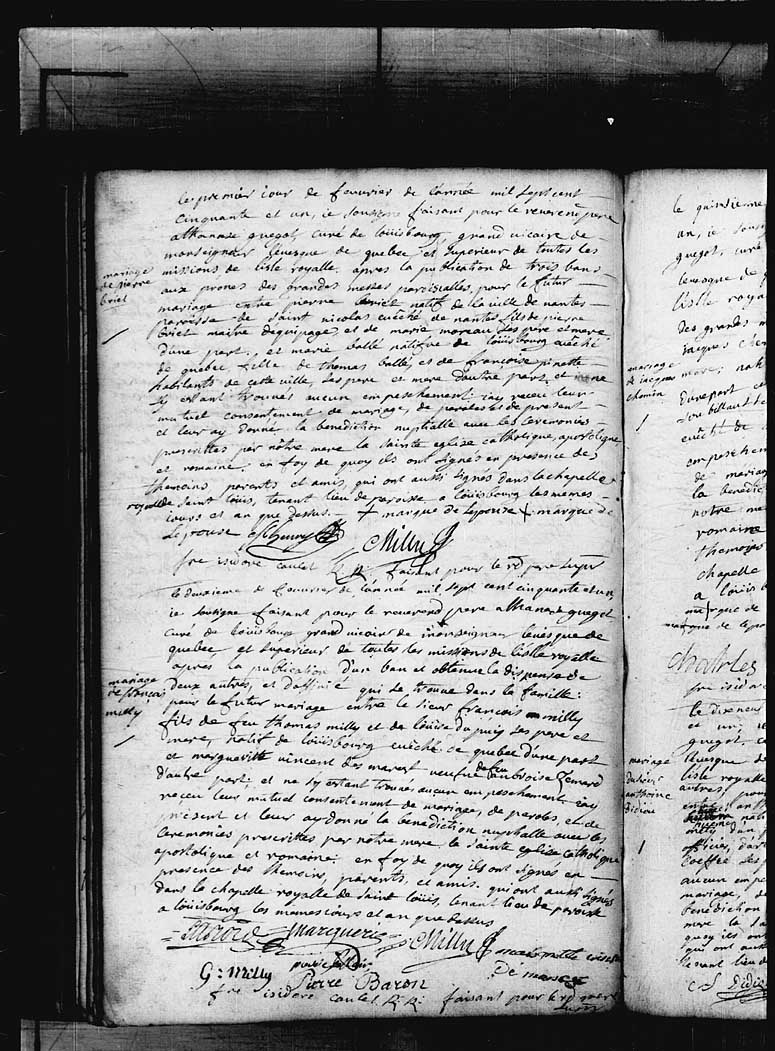 le premier iour de feuvrier de l'année mil sept cent
cinquante et un, ie sousigné faisant pour le reverend pere
athanase guegot, curé de loüisbourg, grand vicaire de
monseigneur l'éuesque de quebec, et superieur de toutes les
missions de l'isle royalle. apres la publication de trois bans
aux prones des grandes messes paroisialles, pour le futur
mariage entre pierre briet natif de la ville de nantes
paroisse de saint nicolas euêché de nantes, fils de pierre
briet maitre dequipage, et de marie moreau ses pere et mere
d'une part, et marie ballé natifue de loüisbourg euéché
de quebec, fille de thomas ballé, et de françoise pinette
habitants de cette ville, ses pere et mere d'autre part, et ne
sy estant trouués aucun empeschement iay receu leur
mutuel consentement de mariage, de paroles et de present
et leur ay donné la benediction nuptialle avec les ceremonies
prescrittes par nôtre mere la sainte eglise catholique, apostolique
et romaine. en foy de quoy ils ont signés en presence des
themoins parents et amis, qui ont aussi signés dans la chapelle
royalle de saint loüis, tenant lieu de paroisse a loüisbourg les memes
iours et an que dessus. + marque de lepouse + marque de
lepouse Milly
fre isidore caulet faisant pour le rd pere supr
mariage
de pierre
briet
le deuxieme de feuvrier de l'année mil sept cent cinquante et un,
ie sousigné faisant pour le reverend pere athanase guegot
curé de loüisbourg grand vicaire de monseigneur l'éuesque de
quebec et superieur de toutes les missions de l'islle royalle
apres la publication d'un ban et obtenue la dispense de
deux autres, et d'affinité qui se trouue dans la famille:
pour le futur mariage entre le sieur francois milly
fils de feu thomas milly et de loüise dupuis ses pere et
mere, natif de loüisbourg euêché de quebec d'une part
et margueritte vincent des marest veufue de feu ambroise
d'autre part, et ne sy estant trouués aucun empeschement iay
receu leur mutuel consentement de mariage, de parole, et de
present et leur ay donné la benediction nuptialle avec les
ceremonies prescrittes par notre mere la sainte eglise catholique
apostolique et romaine: en foy de quoy ils ont signés en
presence des themoins, parents, et amis. qui ont aussi signés
dans la chapelle royalle de saint loüis, tenant lieu de paroisse
a loüisbourg les memes iours et an que dessus
Marguerie Milly
G: Milly Pierre Baron
fre isidore caulet faisant pour le rd pere
mariage
de françois
milly
le quinzieme
un, ie sous
guegot, curé
leuesque de q
l'islle roya
des grandes m
iacques chem
mariage
de iacques
chemin
d'une part
euêché de
empeschem
de mariag
la benedic
notre me
romaine
themoins
chapelle
a loüisb
marque de
marque de lepo
Charles
fre isidor
le dixneuf
et un, ie
guegot, cu
leuesque de
l'isle royalle
autres, pour
mariage
du sieur
anthoine
didion
aucun empe
mariage, de
benediction
mere la sa
quoy ils ont
qui ont auss
tenant lieu